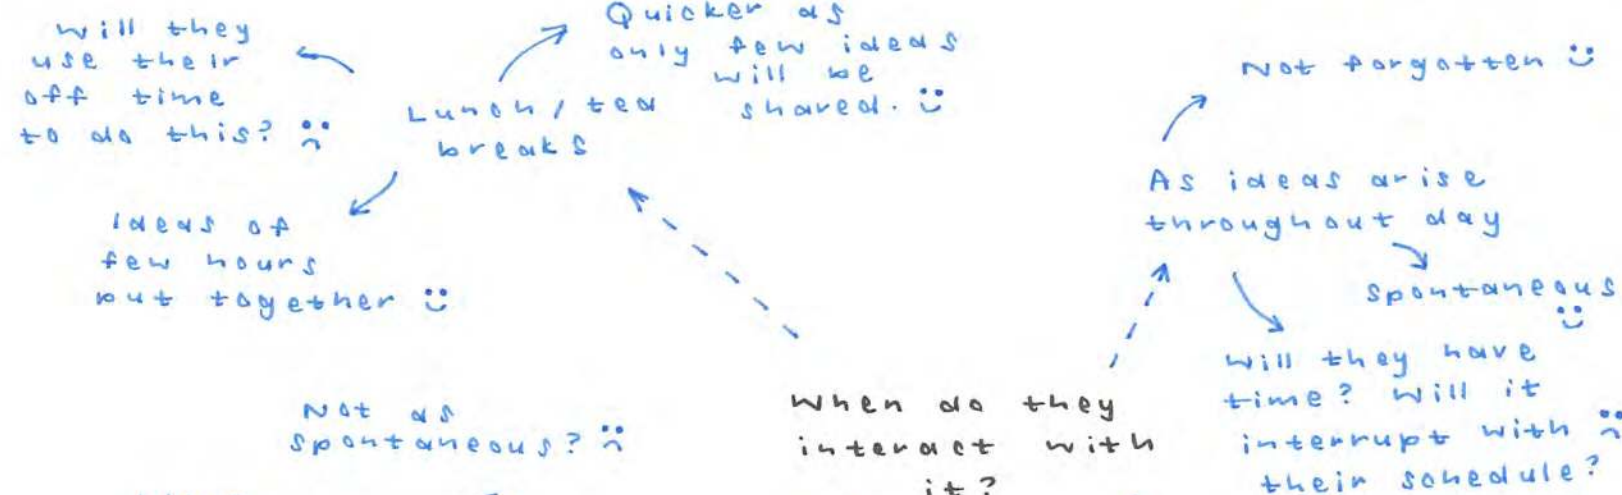 Will they
use their
off time
to do this? :(
Quicker as
only few ideas
will be
shared. :)
Lunch / tea
breaks
Ideas of
few hours
put together :)
Not forgotten :)
As ideas arise
throughout day
Spontaneous
:)
Will they have
time? Will it
interrupt with :(
their schedule?
Not as
spontaneous? :(
When do they
interact with
it?